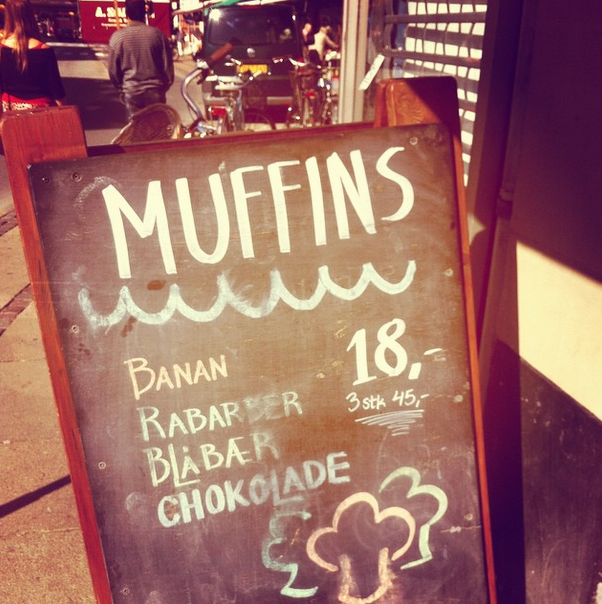 MUFFINS
BANAN
18,-
3 stk 45,-
RABARBER
BLÅBÆR
CHOKOLADE